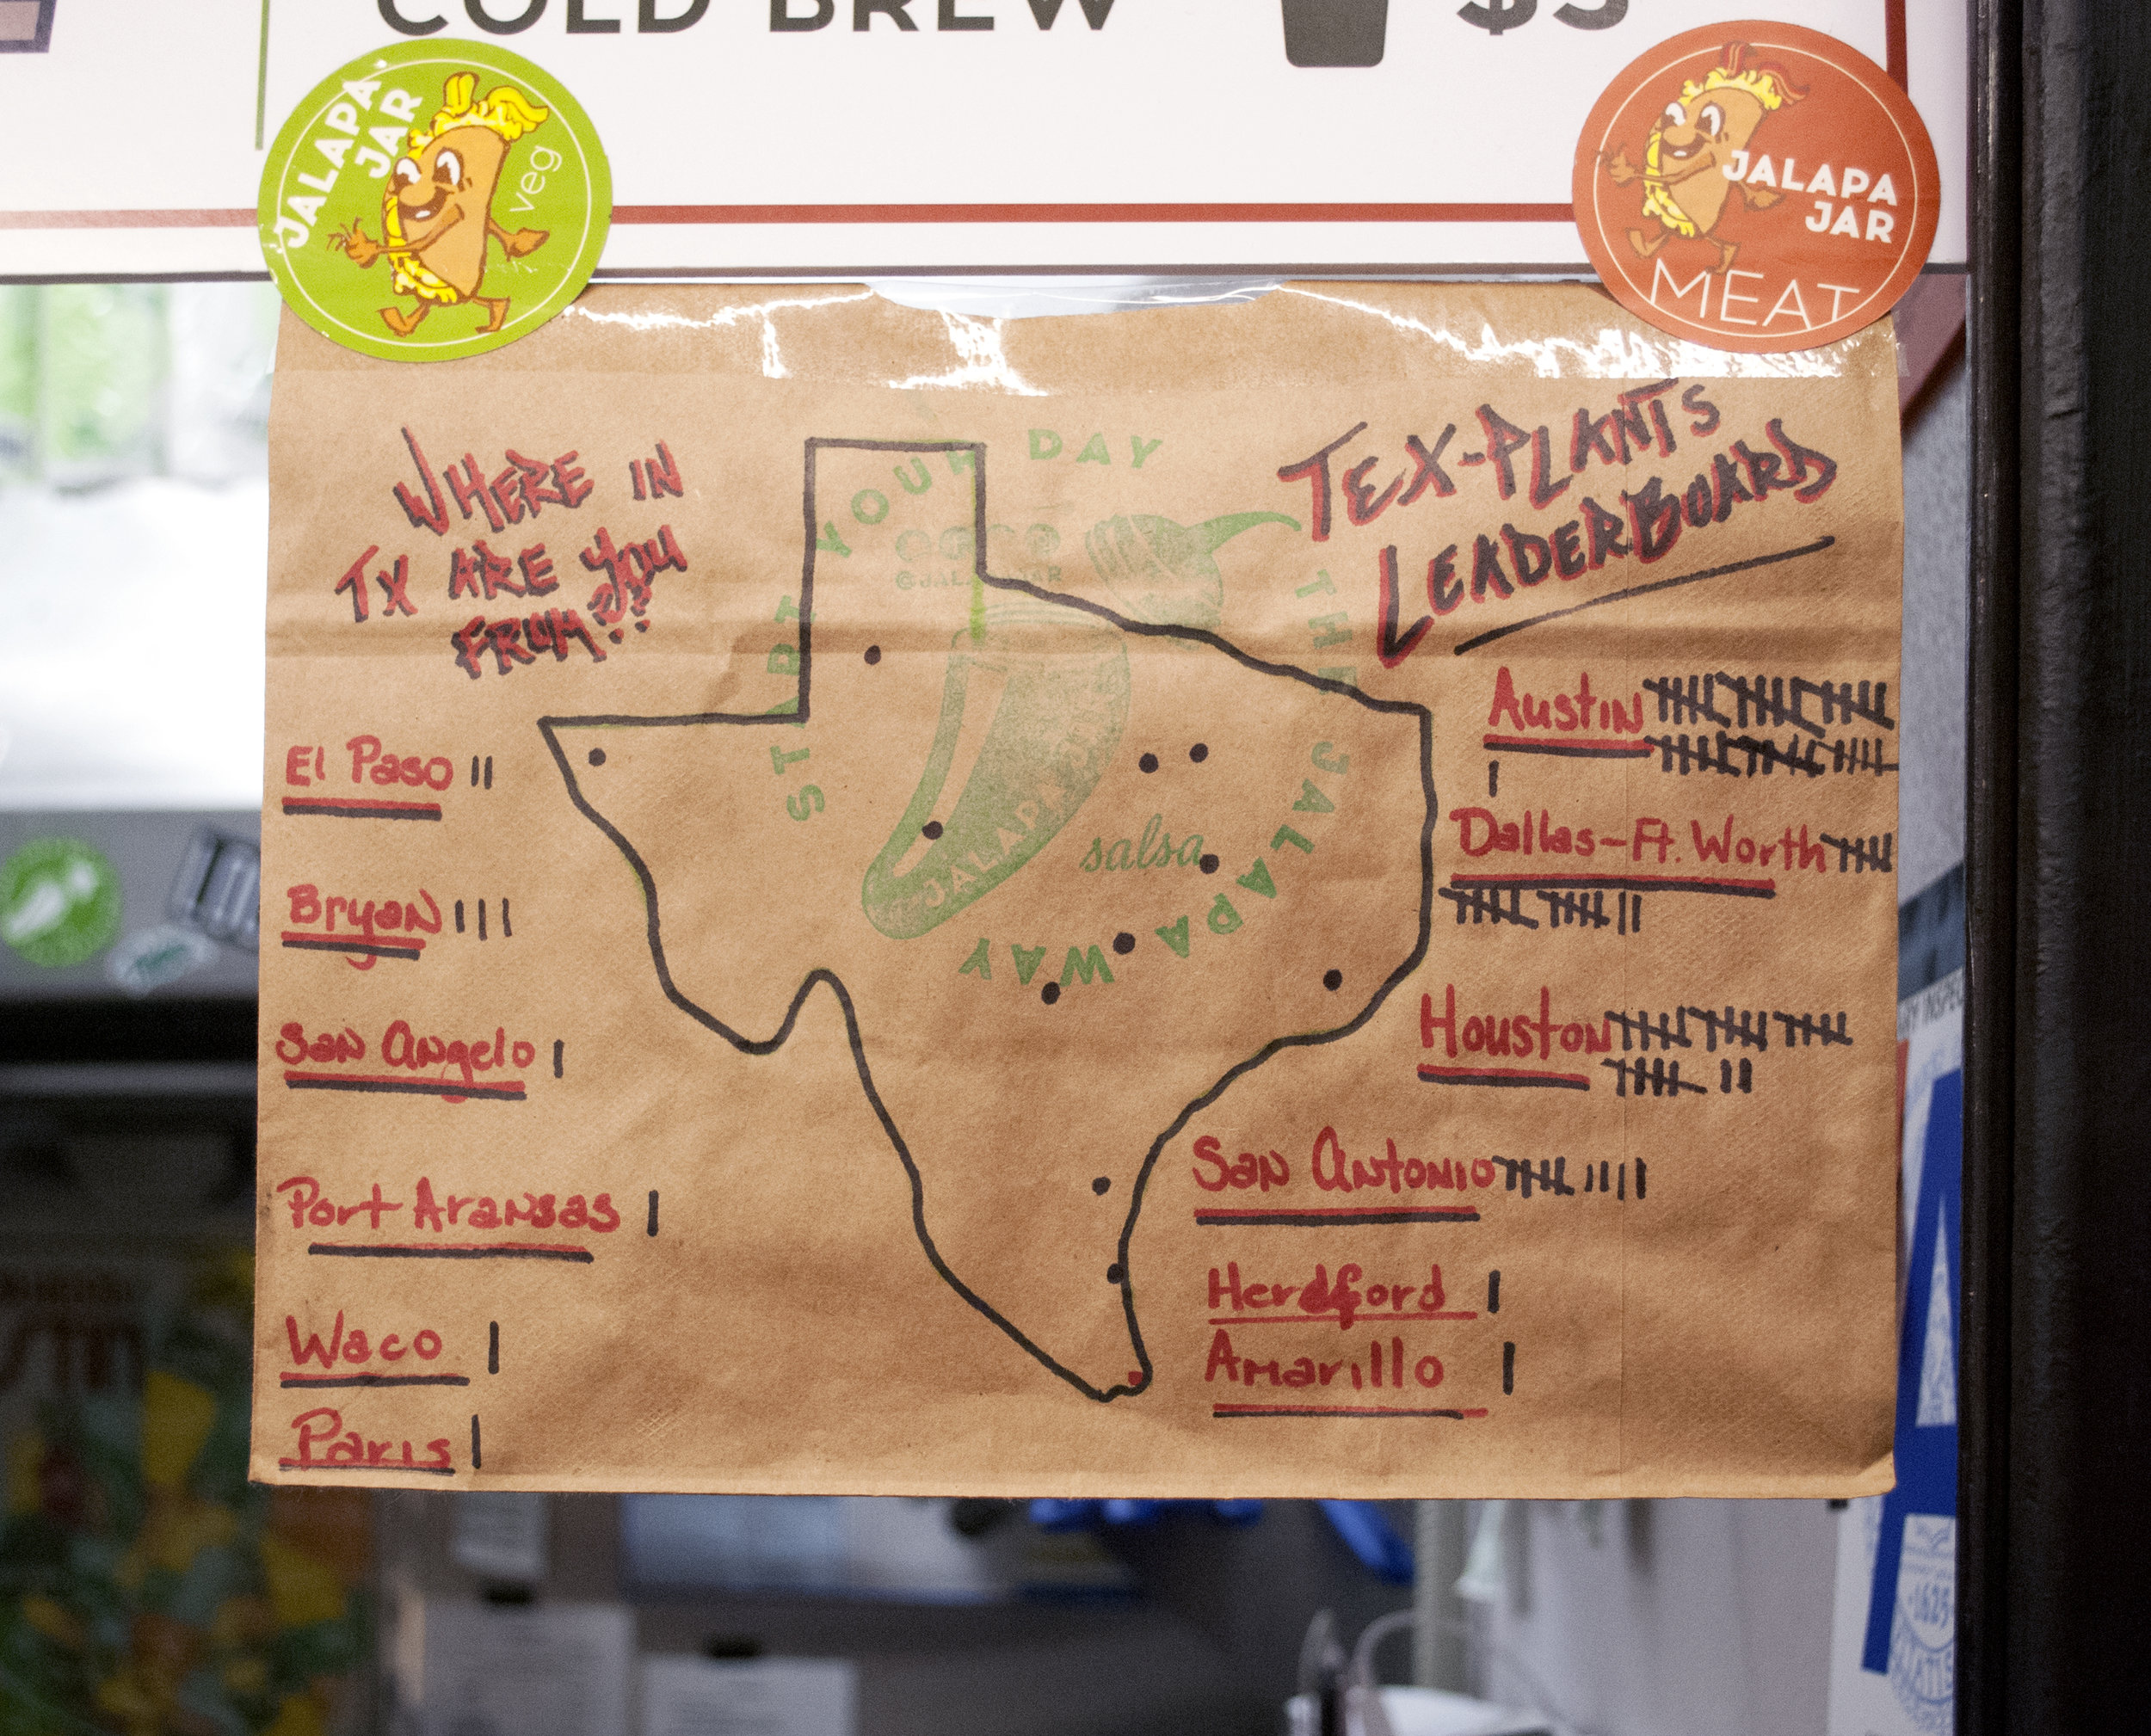 COLD BREW $5
JALAPA
JAR
veg
JALAPA
JAR
MEAT
WHERE IN
TX ARE YOU
FROM???
TEX-PLANTS
LEADERBOARD
START YOUR DAY THE JALAPA WAY
JALAPA JAR
salsa
El Paso ||
Bryan |||
San Angelo |
Port Aransas |
Waco |
Paris |
Austin
Dallas-Ft. Worth
Houston
San Antonio
Herdford |
Amarillo |
A
1625